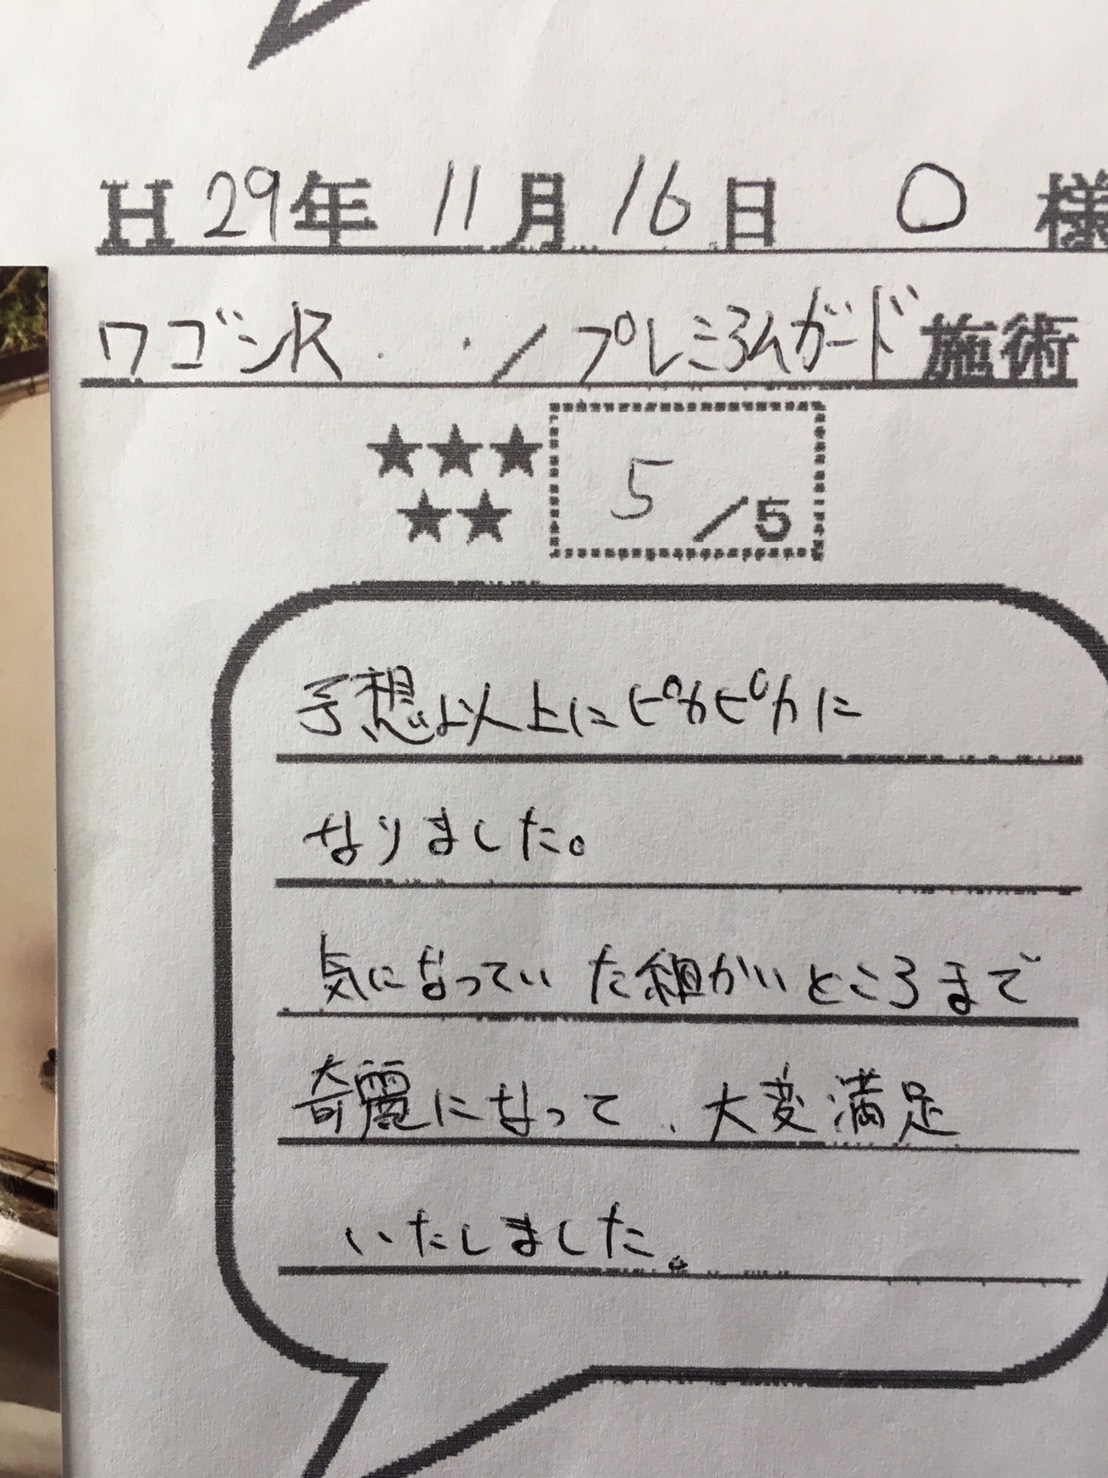 H 29年 11月 16日 O 様
ワゴンR . . / プレミアムガード施術
★★★
★★
5 /5
予想以上にピカピカに
なりました。
気になっていた細かいところまで
奇麗になって、大変満足
いたしました。